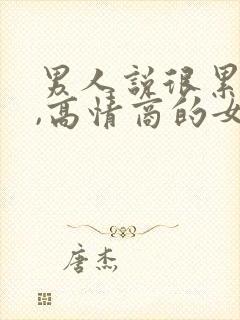 男人说很累
,高情商的女
唐杰